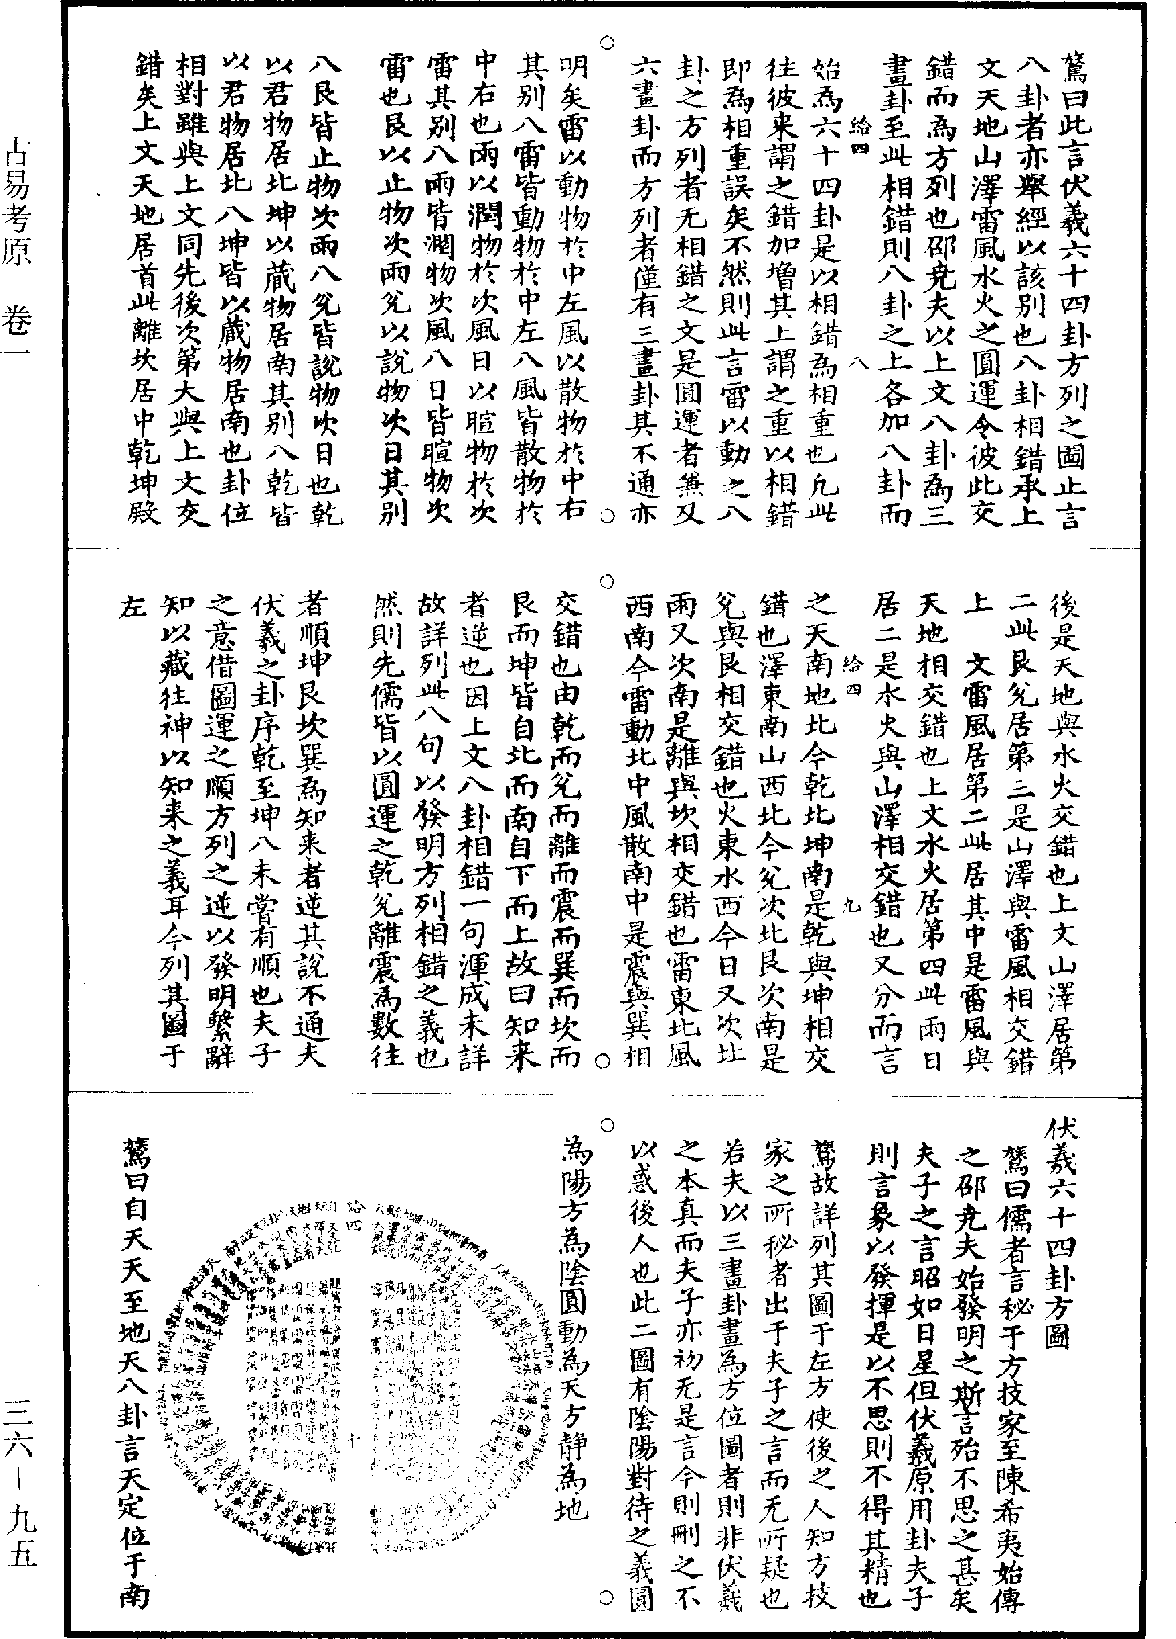 古易考原　卷一
三六—九五
鶩曰此言伏羲六十四卦方列之圖止言
八卦者亦舉經以該別也八卦相錯承上
文天地山澤雷風水火之圓運令彼此交
錯而為方列也邵堯夫以上文八卦為三
畫卦至此相錯則八卦之上各加八卦而
給四
八
始為六十四卦是以相錯為相重也凡此
往彼來謂之錯加增其上謂之重以相錯
即為相重誤矣不然則此言雷以動之八
卦之方列者无相錯之文是圓運者兼又
六畫卦而方列者僅有三畫卦其不通亦
明矣雷以動物於中左風以散物於中右
其別八雷皆動物於中左八風皆散物於
中右也雨以潤物於次風日以暄物於次
雷其別八雨皆潤物次風八日皆暄物次
雷也艮以止物次雨兌以說物次日其別
八艮皆止物次雨八兌皆說物次日也乾
以君物居北坤以藏物居南其別八乾皆
以君物居北八坤皆以藏物居南也卦位
相對雖與上文同先後次第大與上文交
錯矣上文天地居首此離坎居中乾坤殿
後是天地與水火交錯也上文山澤居第
二此艮兌居第三是山澤與雷風相交錯
上　文雷風居第二此居其中是雷風與
天地相交錯也上文水火居第四此雨日
居二是水火與山澤相交錯也又分而言
給四
九
之天南地北今乾北坤南是乾與坤相交
錯也澤東南山西北今兌次北艮次南是
兌與艮相交錯也火東水西今日又次北
雨又次南是離與坎相交錯也雷東北風
西南今雷動北中風散南中是震與巽相
交錯也由乾而兌而離而震而巽而坎而
艮而坤皆自北而南自下而上故曰知來
者逆也因上文八卦相錯一句渾成未詳
故詳列此八句以發明方列相錯之義也
然則先儒皆以圓運之乾兌離震為數往
者順坤艮坎巽為知來者逆其說不通夫
伏羲之卦序乾至坤八未嘗有順也夫子
之意借圖運之順方列之逆以發明繫辭
知以藏往神以知来之義耳今列其圖于
左
伏羲六十四卦方圖
鶩曰儒者言秘于方技家至陳希夷始傳
之邵堯夫始發明之斯言殆不思之甚矣
夫子之言昭如日星但伏羲原用卦夫子
則言象以發揮是以不思則不得其精也
鶩故詳列其圖于左方使後之人知方技
家之所秘者出于夫子之言而无所疑也
若夫以三畫卦畫為方位圖者則非伏羲
之本真而夫子亦初无是言今則刪之不
以惑後人也此二圖有陰陽對待之義圓
為陽方為陰圓動為天方靜為地
給四
十
鶩曰自天天至地天八卦言天定位于南